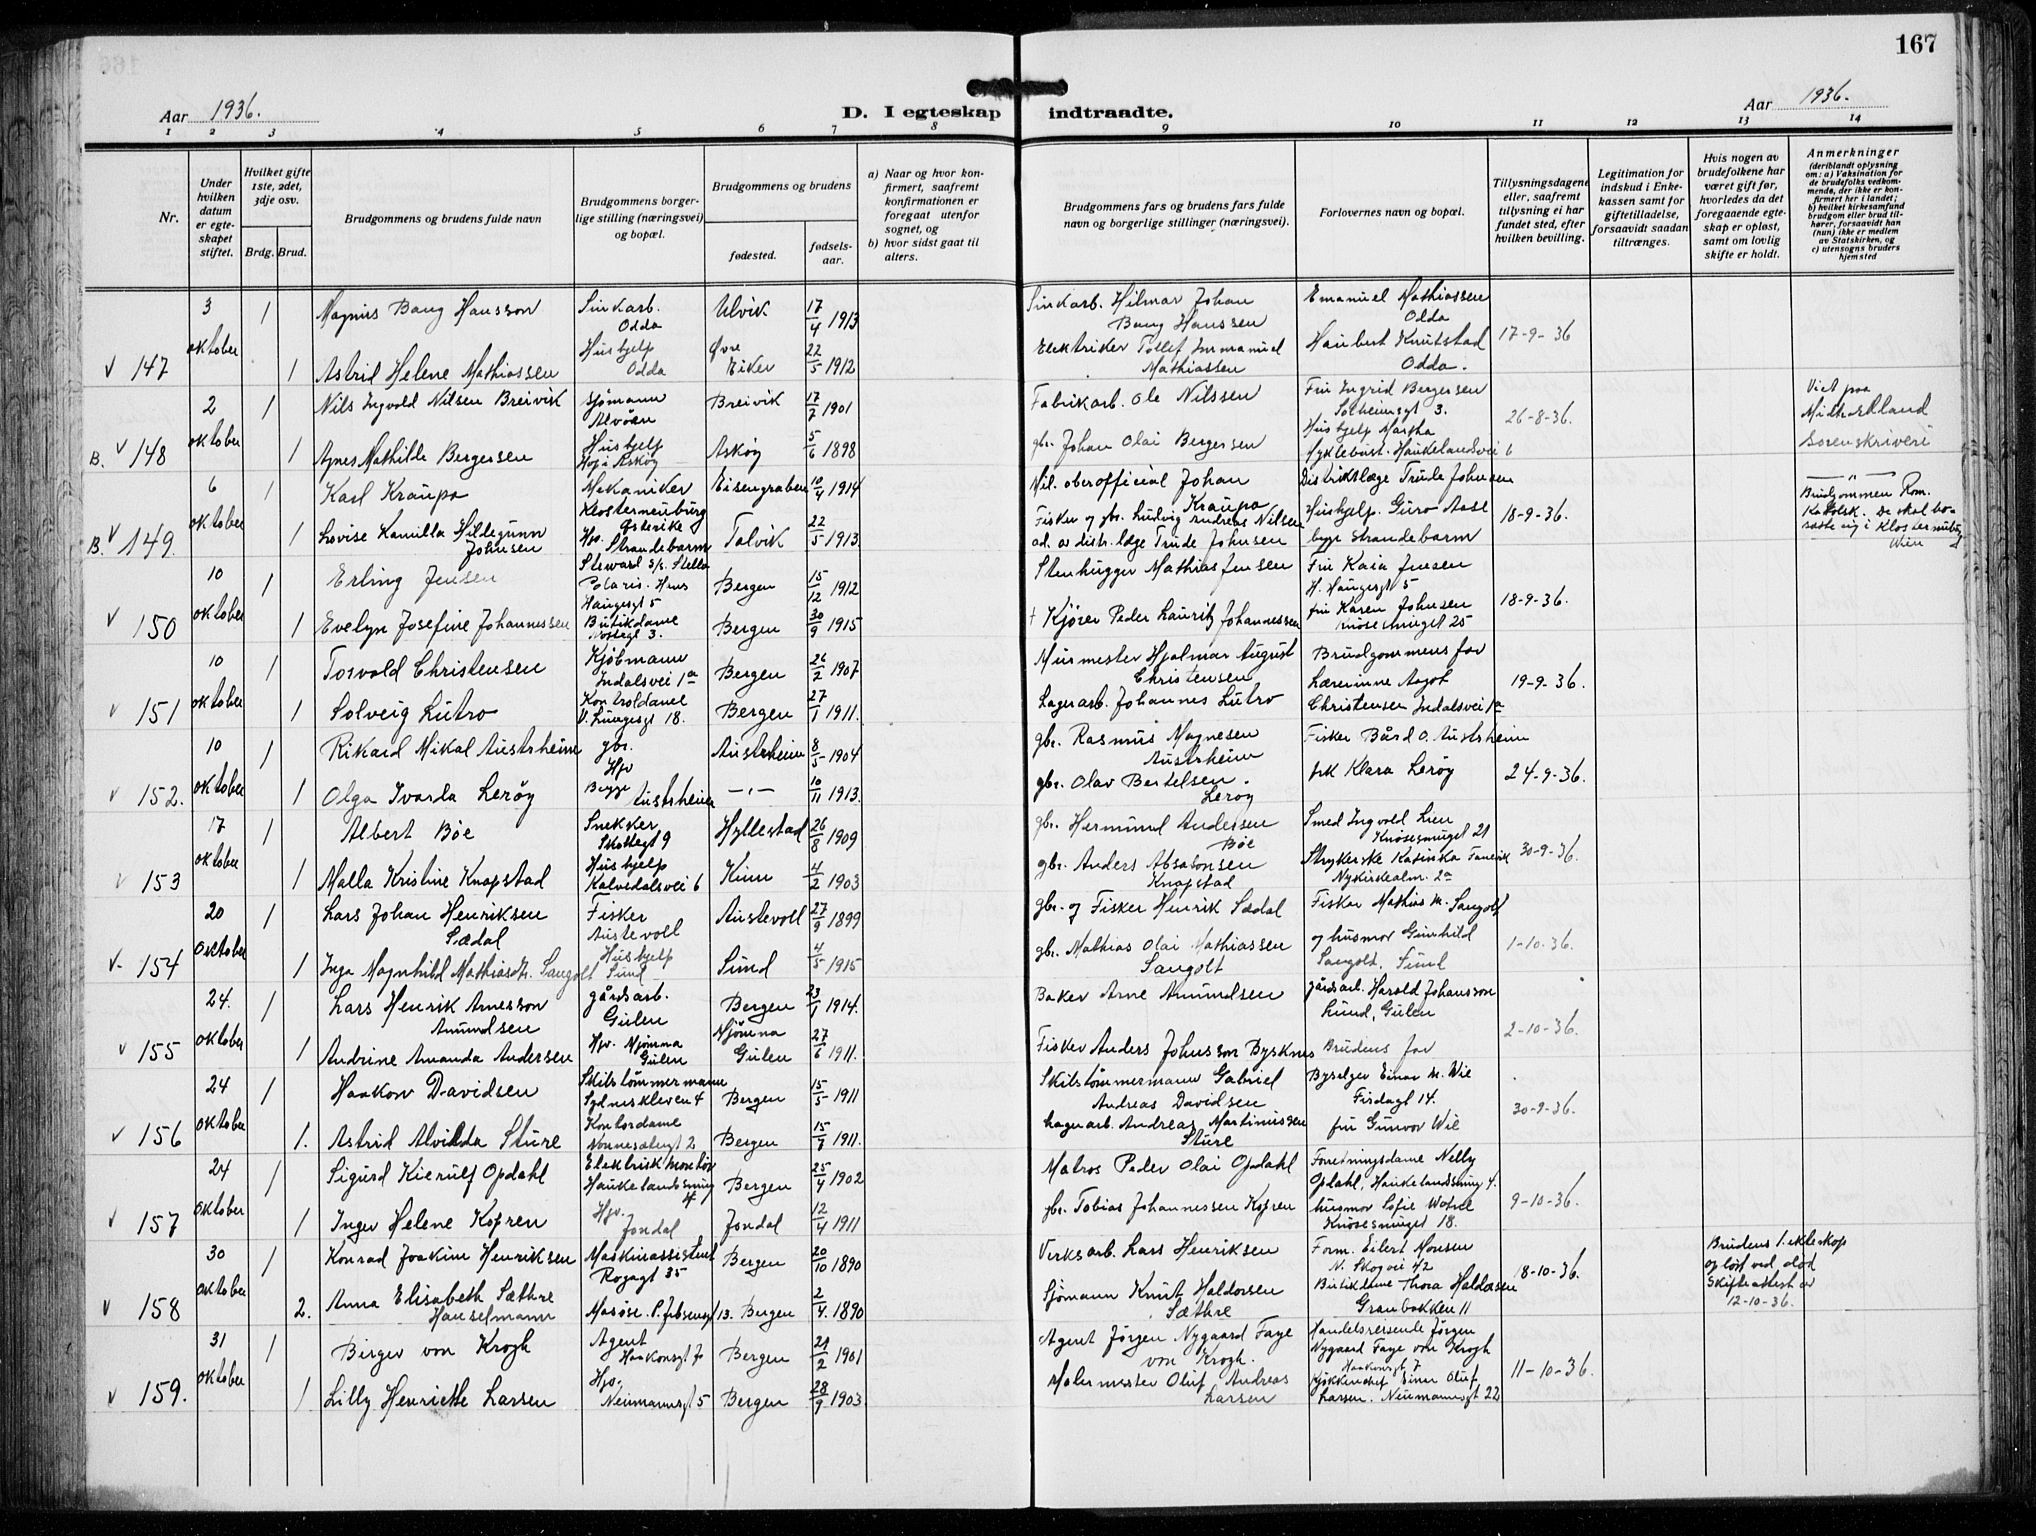 167
Aar 1936.
D. I egteskap indtraadte.
Aar 1936.
1 2 3 4 5 6 7 8 9 10 11 12 13 14
Nr.
Under hvilken datum er egteskapet stiftet.
Hvilket gifte 1ste, 2det, 3dje osv.
Brdg. Brud.
Brudgommens og brudens fulde navn
Brudgommens borgerlige stilling (næringsvei) og bopæl.
Brudgommens og brudens
fødested.
fødselsaar.
a) Naar og hvor konfirmert, saafremt konfirmationen er foregaat utenfor sognet, og
b) hvor sidst gaat til alters.
Brudgommens fars og brudens fars fulde navn og borgerlige stillinger (næringsvei).
Forlovernes navn og bopæl.
Tillysningsdagene eller, saafremt tillysning ei har fundet sted, efter hvilken bevilling.
Legitimation for indskud i Enkekassen samt for giftetilladelse, forsaavidt saadan tiltrænges.
Hvis nogen av brudefolkene har været gift før, hvorledes da det foregaaende egteskap er opløst, samt om lovlig skifte er holdt.
Anmerkninger
(deriblandt oplysning om: a) Vaksination for de brudefolks vedkommende, der ikke er konfirmert her i landet; b) hvilket kirkesamfund brudgom eller brud tilhører, forsaavidt han (hun) ikke er medlem av Statskirken, og c) utensogns bruders hjemsted
3 oktober 1 Magnus Bang Hansson Sinkarb. Odda Ulvik 17/4 1913 Sinkarb. Hilmar Johan Bang Hanssen Emanuel Mathiassen Odda 17-9-36
V 147 1 Astrid Helene Mathiassen Hushjelp Odda Øvre Eiker 22/5 1912 Elektriker Tollef Immanuel Mathiassen Haubert Knutstad Odda.
2 oktober 1 Nils Ingvald Nilsen Breivik Sjømann Alvøen Breivik 17/7 1901 Fabrikarb. Ole Nilssen Fru Ingrid Bergersen Solheimsgt 3. 26-8-36. Viet paa Midhordland
B. V 148 1 Agnes Mathilde Bergersen Hushjelp Hop i Askøy Askøy 5/6 1898 gbr. Johan Olai Bergersen Hushjelp Martha Myklebust. Haukelandsvei 6 Sorenskriveri
6 oktober 1 Karl Kraupa Mekaniker Klosterneuburg Østerike Eisengraben 10/4 1914 Mil. oberofficial Johan Kraupa Distriktslæge Trude Johnsen 18-9-36. Brudgommen Rom. Katolsk. De skal bosætte sig i Klosterneuburg Wien
B. V 149. 1 Lovise Kamilla Hildegunn Johnsen Hjv. Strandebarm Talvik 22/5 1913 Fisker og gbr. Ludvig Andreas Nilsen ad. av distr. læge Trude Johnsen Hushjelp. Guro Aase begge Strandebarm
10 oktober 1 Erling Jensen Steward s/s. Stella Polaris. Hans Haugesgt 5 Bergen 15/12 1912 Stenhugger Mathias Jensen Fru Kaia Jensen H. Haugesgt 5 18-9-36.
V 150 1 Evelyn Josefine Johannessen Butikdame Nostegt 3. Bergen 30/9 1915 + Kjører Peder Lauritz Johannessen fru Karen Johnsen Knøsesmuget 25
10 oktober 1 Torvald Christensen Kjøbmann Indalsvei 1a Bergen 26/2 1907 Murmester Hjalmar August Christensen Brudgommens far 19-9-36.
V 151 1 Solveig Lutro Kontordame V. Lungegt 18. Bergen 27/1 1911. Lagerarb. Johannes Lutro Lærerinne Aagot Christensen Indalsvei 1a
10 oktober 1 Rikard Mikal Austrheim gbr. Austrheim 8/5 1904 gbr. Rasmus Magnesen Austrheim Fisker Bård O. Austrheim 24-9-36.
V 152. 1 Olga Ivarda Lerøy Hjv Begge Austrheim —"— 10/11 1913. gbr. Olav Bertelsen Lerøy frk Klara Lerøy
17 oktober 1 Albert Bøe Snekker Skottegt 9 Hyllestad 26/8 1909 gbr. Hermund Andersen Bøe Smed Ingvald Lien Knøsesmuget 21 30-9-36.
V 153 1 Malla Kristine Knapstad Hushjelp Kalvedalsvei 6 Kinn 4/2 1903 gbr. Anders Absalonsen Knapstad Strykerske Katinka Nykirkealm. 2a
20 oktober 1 Lars Johan Henriksen Sædal Fisker Austevoll Austevoll 27/9 1899 gbr. og Fisker Henrik Sædal Fisker Mathias M. Sangolt 1-10-36.
V. 154 1 Inga Magnhild Mathiasdtr. Sangolt Hushjelp Sund Sund 4/5 1915 gbr. Mathias Olai Mathiassen Sangolt og husmor Gunhild Sangolt. Sund
24. oktober 1 Lars Henrik Arnesson Amundsen gårdsarb. Gulen Bergen 23/1 1914. Baker Arne Amundsen gårdsarb. Harald Johansson Lund, Gulen 2-10-36.
V 155 1 Andrine Amanda Andersen Hjv. Mjømna Gulen Mjømna Gulen 27/6 1911. Fisker Anders Johnsson Byrknes Brudens far
24 oktober 1 Haakon Davidsen Skibstømmermann Sydneskleven 4 Bergen 15/5 1911 Skibstømmermann Gabriel Andreas Davidsen Byselger Einar M. Wie Firdagt 14. 30-9-36.
V 156 1. Astrid Alvilda Sture Kontordame Nonnesætergt 2 Bergen 15/7 1911. Lagerarb. Andreas Martinussen Sture fru Gunvor Wie
24 oktober 1 Sigurd Kierulf Opdahl Elektrisk Montør Haukelandssmug 4 Bergen 25/4 1902 Matros Peder Olai Opdahl Forretningsdame Nelly Opdahl, Haukelandssmug 4. 9-10-36.
V 157 1 Inger Helene Kopren Hjv. Jondal Jondal 12/4 1911 gbr. Tobias Johannessen Kopren husmor Sofie Knøsesmuget 18.
30 oktober 1 Konrad Joakim Henriksen Maskinassistent Rogagt 35 Bergen 20/10 1890 Verksarb. Lars Henriksen Form. Eilert Monsen N. Skogvei 42 18-10-36. Brudens 1. ekteskap opløst ved død Skifteattest av 12-10-36.
V 158 2. Anna Elisabeth Sæthre Hanselmann Masøse. P. Jebsensgt 13. Bergen 2/4 1890 Sjømann Knut Haldorsen Sæthre Butikdame Thora Haldorsen Granbakken 11
31 oktober 1 Birger von Krogh Agent Haakonsgt 7 Bergen 21/2 1901 Agent Jørgen Nygaard Faye von Krogh. Handelsreisende Jørgen Nygaard Faye von Krogh Haakonsgt 7 11-10-36.
V 159. 1 Lilly Henriette Larsen Hjv. Neumannsgt 5 Bergen 28/9 1903 Malermester Oluf Andreas Larsen Kjøkkenchef Einar Oluf Larsen. Neumannsgt 22